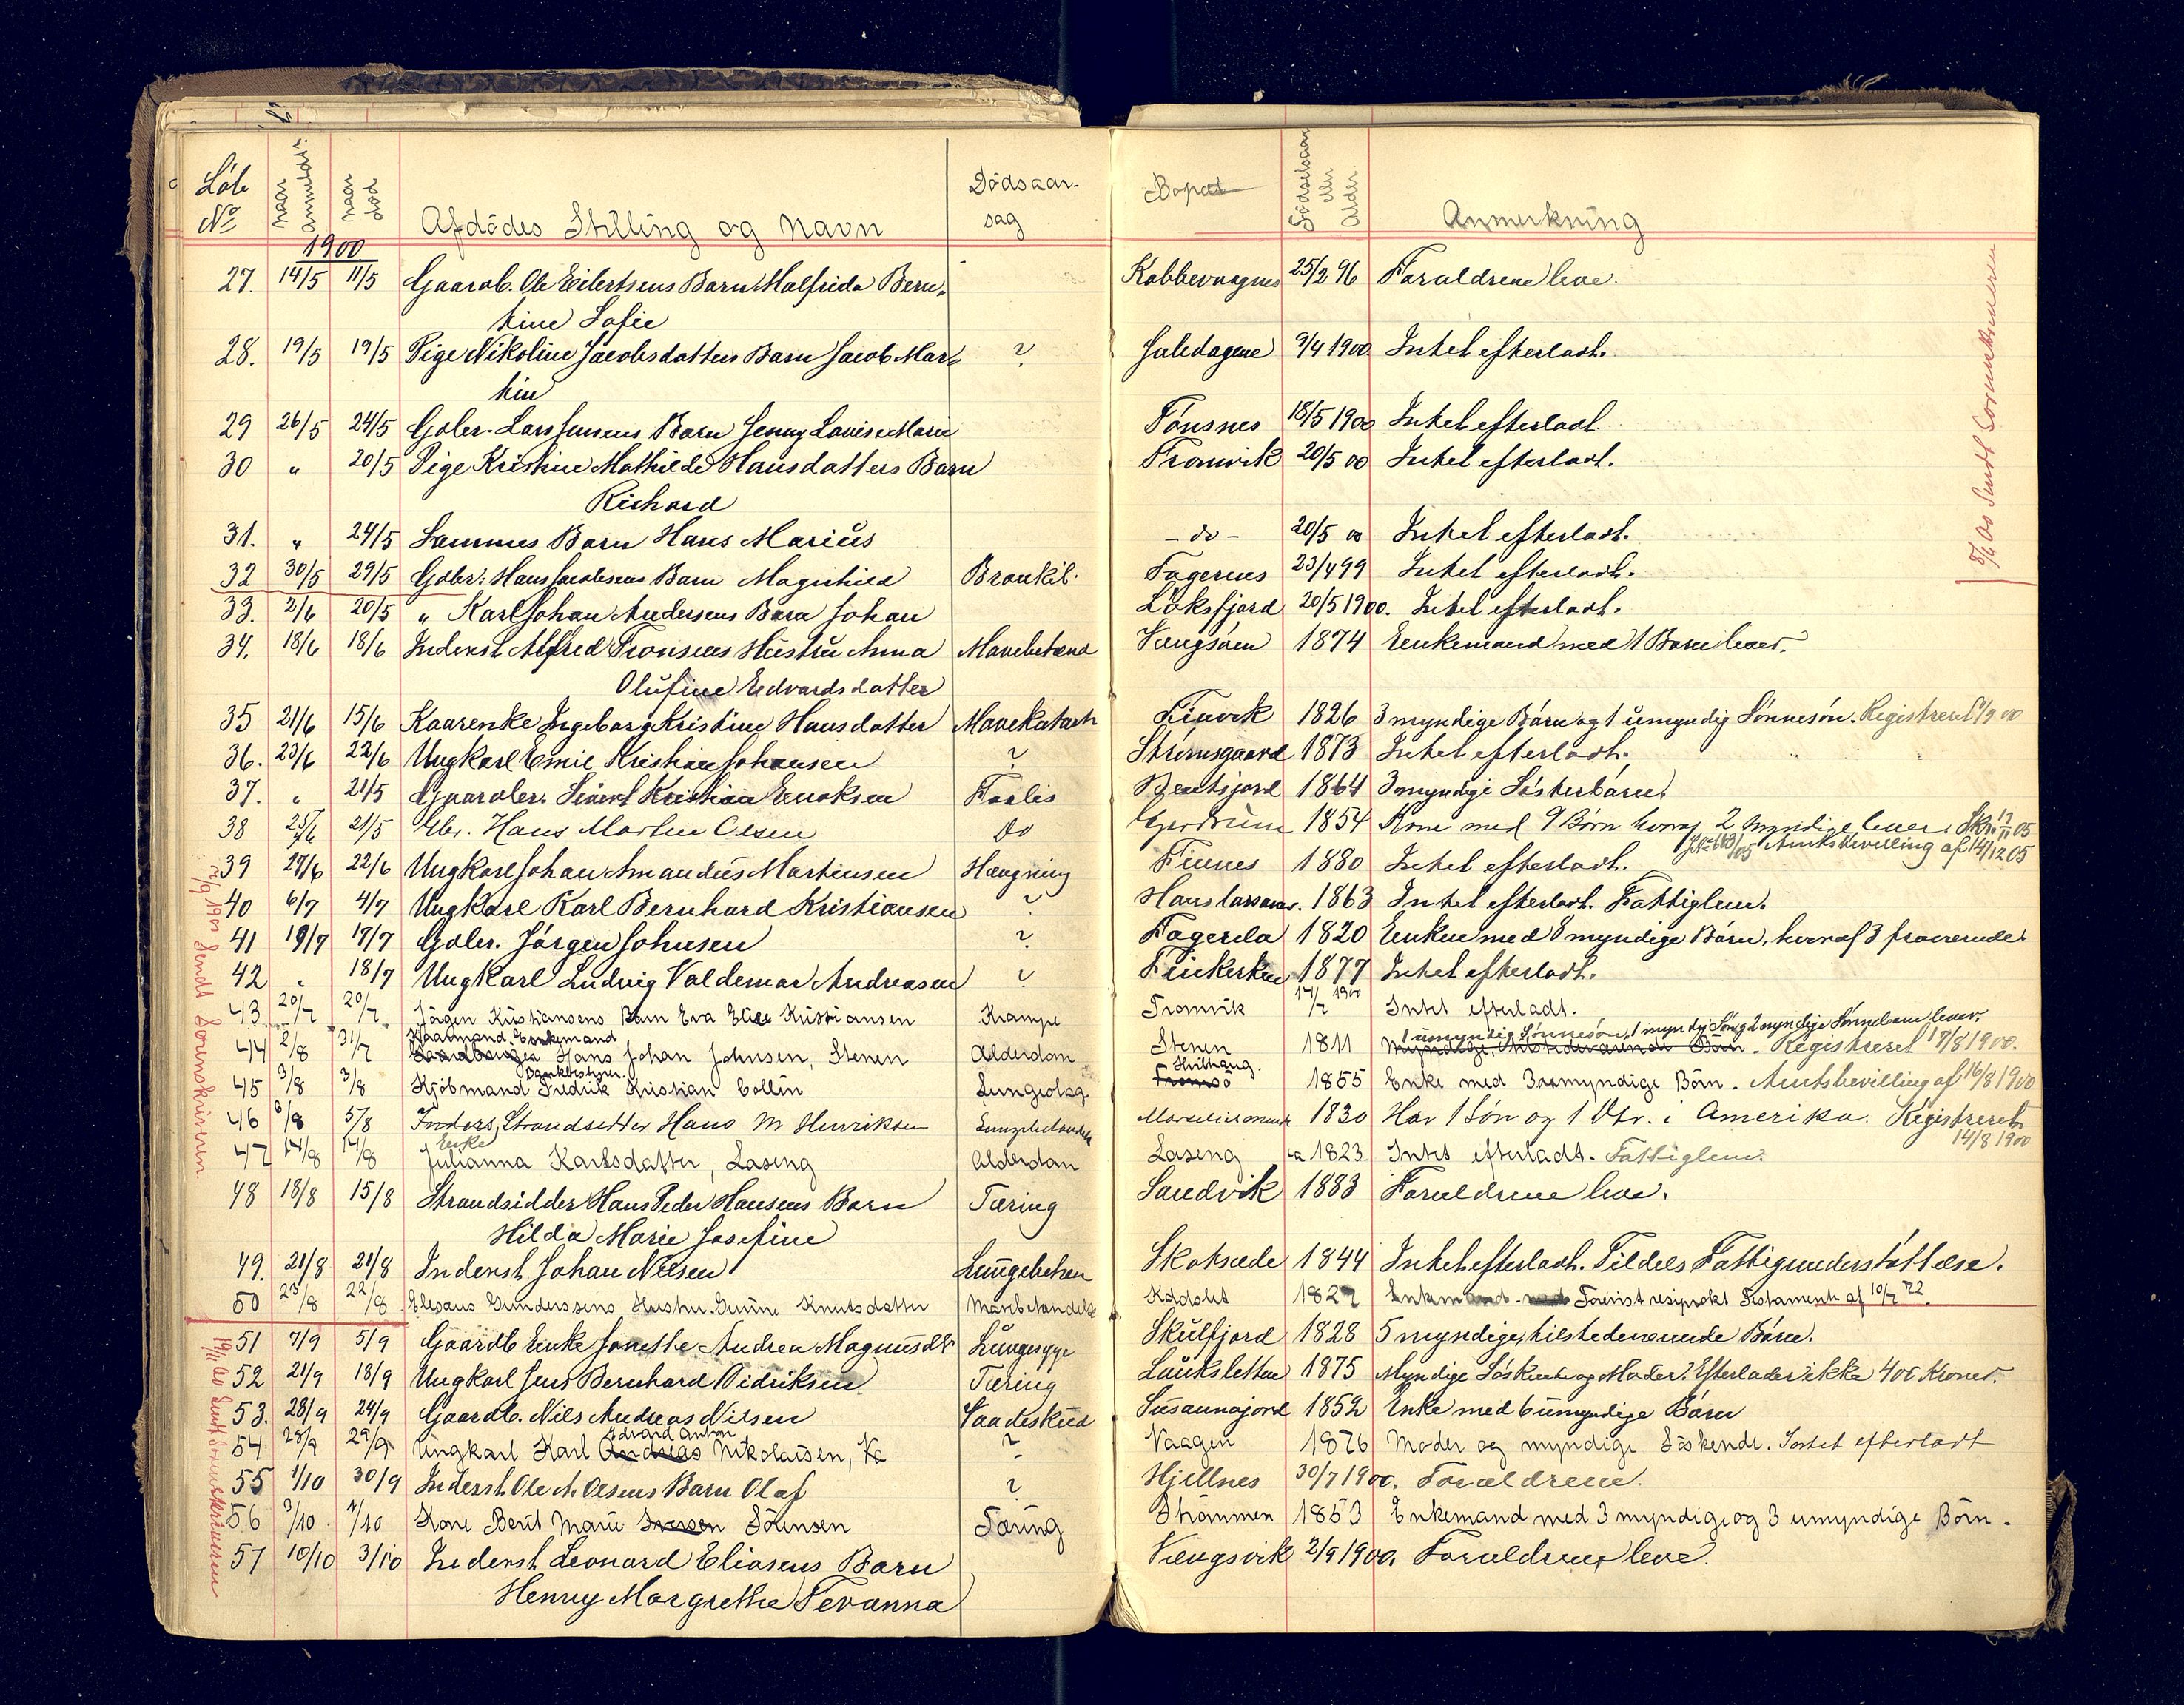 Löb No naar anmeldt naar död Afdödes Stilling og Navn Dödsaarsag Bopæl Födselsaar eller Alder Anmerkning
1900
27. 14/5 11/5 Gaardb. Ole Eilertsens Barn Malfrida Bern- Kobbevaagnes 25/2 96 Foraldrene leve.
tine Sofie
28. 19/5 19/5 Pige Nikoline Jacobsdatters Barn Jacob Mar- ? Juledagene 9/4 1900 Intet efterladt.
tin
29 26/5 24/5 Gdbr. Lars Jensens Barn Jenny Lovise Marie Tönsnes 18/5 1900 Intet efterladt.
30 " 20/5 Pige Kristine Mathilde Hansdatters Barn Tromvik 20/5 00 Intet efterladt.
Richard
31. " 24/5 Sammes Barn Hans Marius - do - 20/5 00 Intet efterladt.
32 30/5 29/5 Gdbr. Hans Jacobsens Barn Magnhild Bronkit. Fagernes 23/4 99 Intet efterladt.
33. 2/6 20/5 " Karl Johan Andersens Barn Johan Löksfjord 20/5 1900. Intet efterladt.
34. 18/6 18/6 Inderst Alfred Tronsens Hustru Anna Mavebetænd Vængsöen 1874 Enkemand med 1 Barn lever.
Olufine Edvardsdatter
35 21/6 15/6 Kaarenke Ingeborg Kristine Hansdatter Mavekatarh Finvik 1826 3 myndige Börn og 1 umyndig Sönnesön. Registreret
36. 23/6 22/6 Ungkarl Emil Kristian Johansen ? Strömsgaard 1873 Intet efterladt.
37. " 21/5 Gaardbr. Sivert Kristian Enoksen Forlis Bentsjord 1864 3 myndige Sösterbörn
38 25/6 21/5 Gbr. Hans Martin Olsen Do Gjerdrum 1854 Kone med 9 Börn hvoraf 2 myndige lever. Skr. 17/11 05
Amtsbevilling af 14/12 05
39 27/6 22/6 Ungkarl Johan Amandus Martinsen Hængning Finnes 1880 Intet efterladt.
40 6/7 4/7 Ungkarl Karl Bernhard Kristiansen ? Hanslarsanes. 1863 Intet efterladt. Fattiglem.
41 19/7 17/7 Gdbr. Jörgen Johnsen ? Fagerela 1820 Enken med 8 myndige Börn, hvoraf 3 fraværende
42 " 18/7 Ungkarl Ludvig Valdemar Andreasen ? Finkerken 1877 Intet efterladt.
43 20/7 20/7 Jörgen Kristiansens Barn Eva Elise Kristiansen Krampe Tromvik 1900 Intet efterladt.
Kaarmand. Enkemand 1 umyndig Sönnesön, 1 myndig Sön og 2 myndige Sönnebörn lever.
44 2/8 31/7 Hans Johan Johnsen, Stenen Alderdom Stenen 1811 Registreret 17/8 1900.
45 3/8 3/8 Kjöbmand Fredrik Kristian Collin Lungeslag Tromsö 1855 Enke med 3 umyndige Börn. Amtsbevilling af 16/8 1900
46 6/8 5/8 Inders, Strandsidder Hans M Henriksen 1830 Har 1 Sön og 1 Dtr. i Amerika. Registreret
14/8 1900
Enke
47 14/8 14/8 Julianna Karlsdatter, Laseng Alderdom Laseng ca 1823. Intet efterladt. Fattiglem.
48 18/8 15/8 Strandsidder Hans Peder Hansens Barn Tæring Sandvik 1883 Foraldrene leve.
Hilda Marie Josefine
49. 21/8 21/8 Inderst Johan Nilsen Lungebetæn Skatsæde 1844 Intet efterladt. Tildels Fattigunderstöttelse.
50 23/8 22/8 Elesæus Gunderssens Hustru Gurine Knutsdatter Mavebetændelse 1827 Enkemand Tosrist resiprokt Testament af 10/7 72.
51 7/9 5/9 Gaardb. Enke Janethe Andrea Magnusdtr Lungesyge Skulfjord 1828 5 myndige, tilstedeværende Börn.
52 21/9 18/9 Ungkarl Jens Bernhard Didriksen Tæring Laukslettен 1875 Myndige Söskende og Moder. Efterlader ikke 400 Kroner.
53. 28/9 24/9 Gaardb. Nils Andreas Nilsen Vaadeskud Susannajord 1852 Enke med 6 umyndige Börn
Edvard Anton
54 28/9 29/9 Ungkarl Karl Andreas Nikolaisen, Va ? Vaagen 1876 Moder og myndige Söskende. Intet efterladt
55 1/10 30/9 Inderst Ole A. Olsens Barn Olaf ? Hjellnes 30/7 1900. Foraldrene.
56 9/10 7/10 Kone Berit Marie Iversen Sörensen Tæring Strömmen 1853 Enkemand med 3 myndige og 3 umyndige Börn.
57 10/10 3/10 Inderst Leonard Eliasens Barn Vængsvik 2/9 1900. Foraldrene leve.
Henny Margrethe Tevanna
12/9 1900 Sendt Sorenskriveren.
19/11 00 Sendt Sorenskriveren